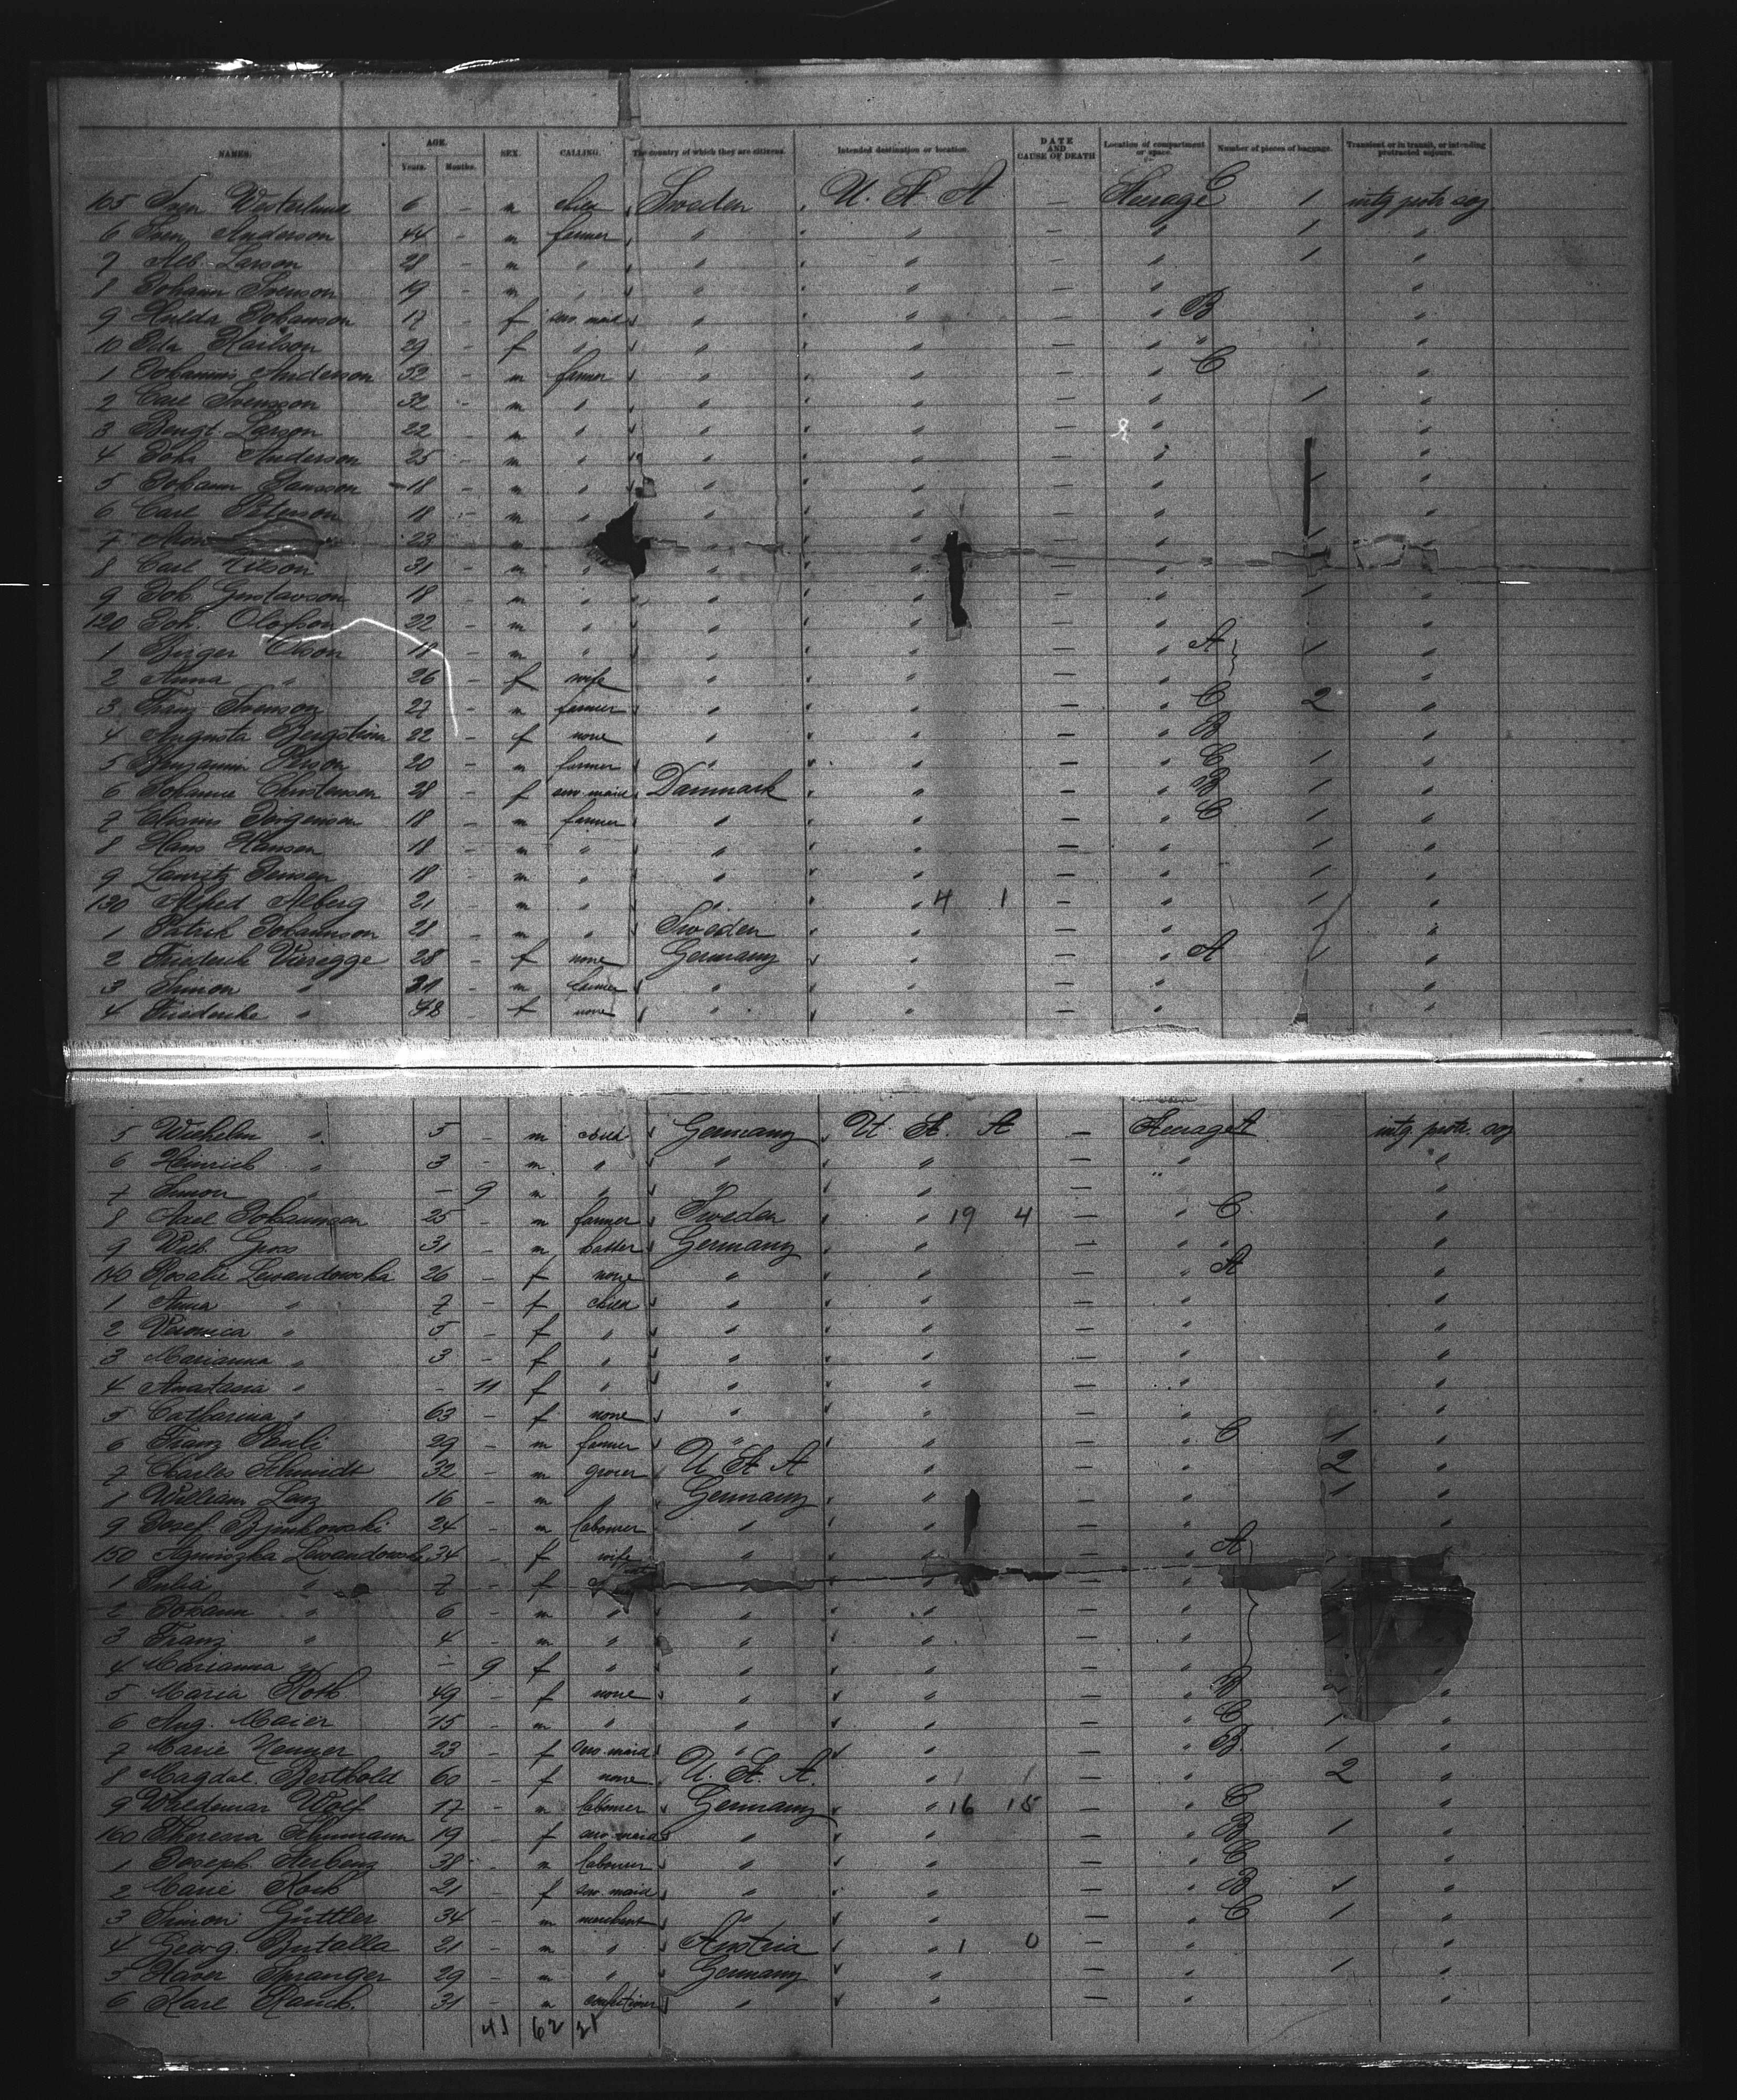 NAMES. AGE. SEX. CALLING. The country of which they are citizens. Intended destination or location. DATE AND CAUSE OF DEATH Location of compartment or space. Number of pieces of baggage. Transient or in transit, or intending protracted sojourn.
Years. Months.
105 Sven Westerlund 6 - m child Sweden U. S. A - Steerage C 1 intg protr soj
6 Sven Anderson 44 - m farmer " " - " 1 "
7 Alb. Larson 28 - m " " " - " 1 "
8 Johann Svenson 19 - m " " " - " "
9 Hulda Johanson 17 - f serv. maid " " - " B "
10 Ida Karlson 29 - f " " " - " " "
1 Johannis Anderson 52 - m farmer " " - " C "
2 Carl Svensson 32 - m " " " - " 1 "
3 Bengt Larson 22 - m " " " - " "
4 Joh. Anderson 25 - m " " " - " "
5 Johann Jansson 18 - m " " " - " 1 "
6 Carl Peterson 18 - m " " " - " "
7 23 - m " - " "
8 Carl Nilson 31 - m " " " - " "
9 Joh. Gustavson 18 - m " " " - " 1 "
120 Joh. Olofson 22 - m " " " - " "
1 Birger Olson - m " " " - " A 1 "
2 Anna " 26 - f wife " " - " "
3 Franz Svenson 27 - m farmer " " - " C 2 "
4 Augusta Bergström 22 - f none " " - " B "
5 Benjamin Person 20 - m farmer " " - " C 1 "
6 Johanne Christensen 28 - f serv. maid Danmark " - " B 1 "
7 Jörgensen 18 - m farmer " " - " C 1 "
8 Hans Hansen 18 - m " " " - " 1 "
9 Lauritz Jensen 18 - m " " " - " 1 "
130 Alfred Alberg 21 - m " " " 4 1 - " 1 "
1 Patrik Johannson 28 - m " Sweden " - " 1 "
2 Friederich Vieregge 28 - f none Germany " - " A 1 "
3 Simon " 31 - m farmer " " - " "
4 Friederike " - f none " " - " "
5 Wilhelm " 5 - m child Germany U. S. A - Steerage A intg. protr. soj
6 Heinrich " 3 - m " " " - " "
7 Simon " - 9 m " " " - "
8 Axel Johannson 25 - m farmer Sweden " 19 4 - " C "
9 Wilh. Gross 31 - m hatter Germany " - " " "
140 Rosalie Lewandowska 26 - f none " " - " A "
1 Anna " 7 - f child " " - " "
2 Veronica " 5 - f " " " - " "
3 Marianna " 3 - f " " " - " "
4 Anastasia " - 11 f " " " - " "
5 Catharina " 63 - f none " " - " "
6 Franz Pauli 29 - m farmer " " - " C 1 "
7 Charles Schmidt 32 - m grocer U. S. A " - " 2 "
8 William Lanz 16 - m " Germany " - " 1 "
9 Josef 24 - m labourer " " - " "
150 Agnieszka Lewandowska 34 - f wife " " - " A "
1 Julia " 7 - f " " - "
2 Johann " 6 - m " " " - "
3 Franz " 4 - m " " " - "
4 Marianna " - 9 f " " " - " "
5 Maria Roth 49 - f none " " - " B "
6 Aug. Maier 15 - m " " " - " C 1 "
7 Marie 23 - f serv. maid " " - " B 1 "
8 Magdal. Berthold 60 - f none U. S. A. " - " 2 "
9 Waldemar Wolf 17 - m labourer Germany " 16 15 - " C "
160 Theresia Schumann 19 - f serv. maid " " - " B 1 "
1 Joseph 38 - m labourer " " - " C "
2 Marie Koch 21 - f serv. maid " " - " B 1 "
3 Simon Güttler 34 - m merchant " " - " C 1 "
4 Georg Butalla 21 - m " Austria " 1 0 - " "
5 Xaver Spranger 29 - m " Germany " - " 1 "
6 Karl Rauch. 31 - m " " - " "
41 62 21